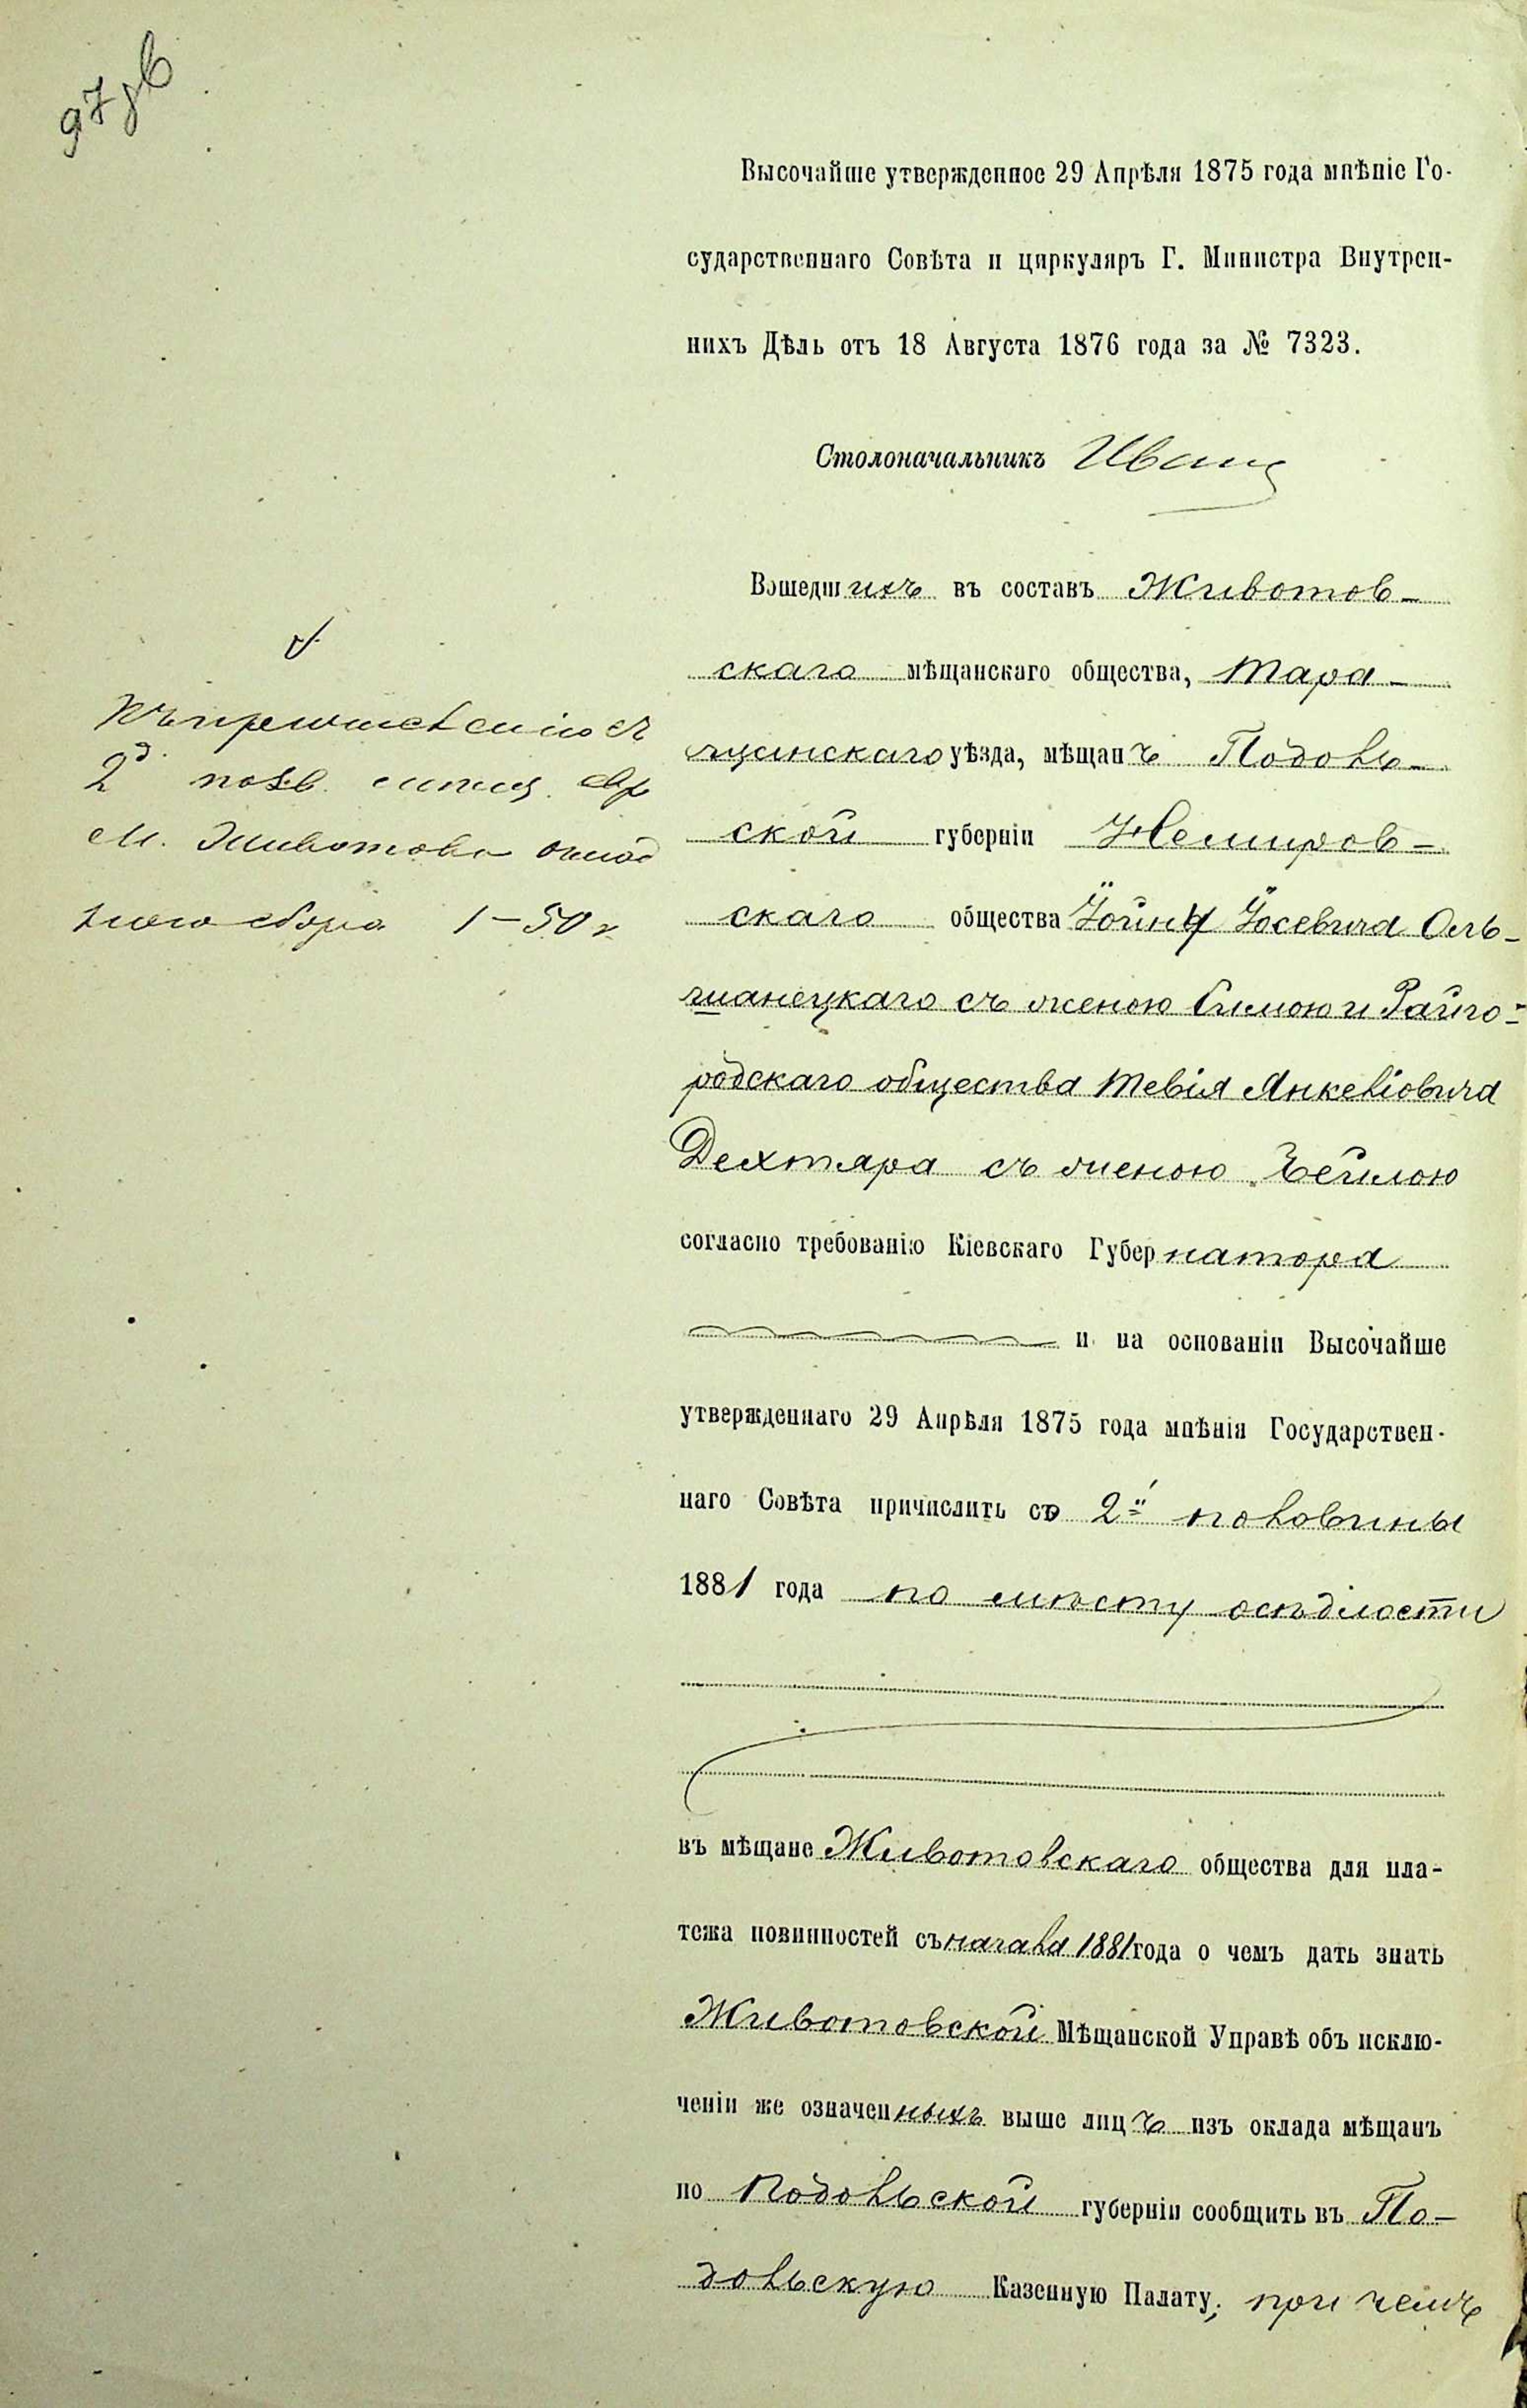 97 об
Высочайше утвержденное 29 Апрѣля 1875 года мнѣніе Го-
сударственнаго Совѣта и циркуляръ Г. Министра Внутрен-
нихъ Дѣлъ отъ 18 Августа 1876 года за № 7323.
Столоначальникъ
Вошедшихъ въ составъ Животов-
скаго мѣщанскаго общества, Тара-
щанскаго уѣзда, мѣщанъ Подоль-
ской губерніи Немиров-
скаго общества Іойну Іосевича Оль-
шанецкаго съ женою Симою и Райго-
родскаго общества Тевія Янкеліовича
Дехтяра съ женою Бейлою
согласно требованію Кіевскаго Губернатора
и на основаніи Высочайше
утвержденнаго 29 Апрѣля 1875 года мнѣнія Государствен-
наго Совѣта причислить съ 2й половины
1881 года по мѣсту осѣдлости
въ мѣщане Животовскаго общества для пла-
тежа повинностей съ начала 1881 года о чемъ дать знать
Животовской Мѣщанской Управѣ объ исклю-
ченіи же означенныхъ выше лицъ изъ оклада мѣщанъ
по Подольской губерніи сообщить въ По-
дольскую Казенную Палату, при чемъ
Къ причисленію съ
2й
м. Животова оклад
ного сбора 1-50 к